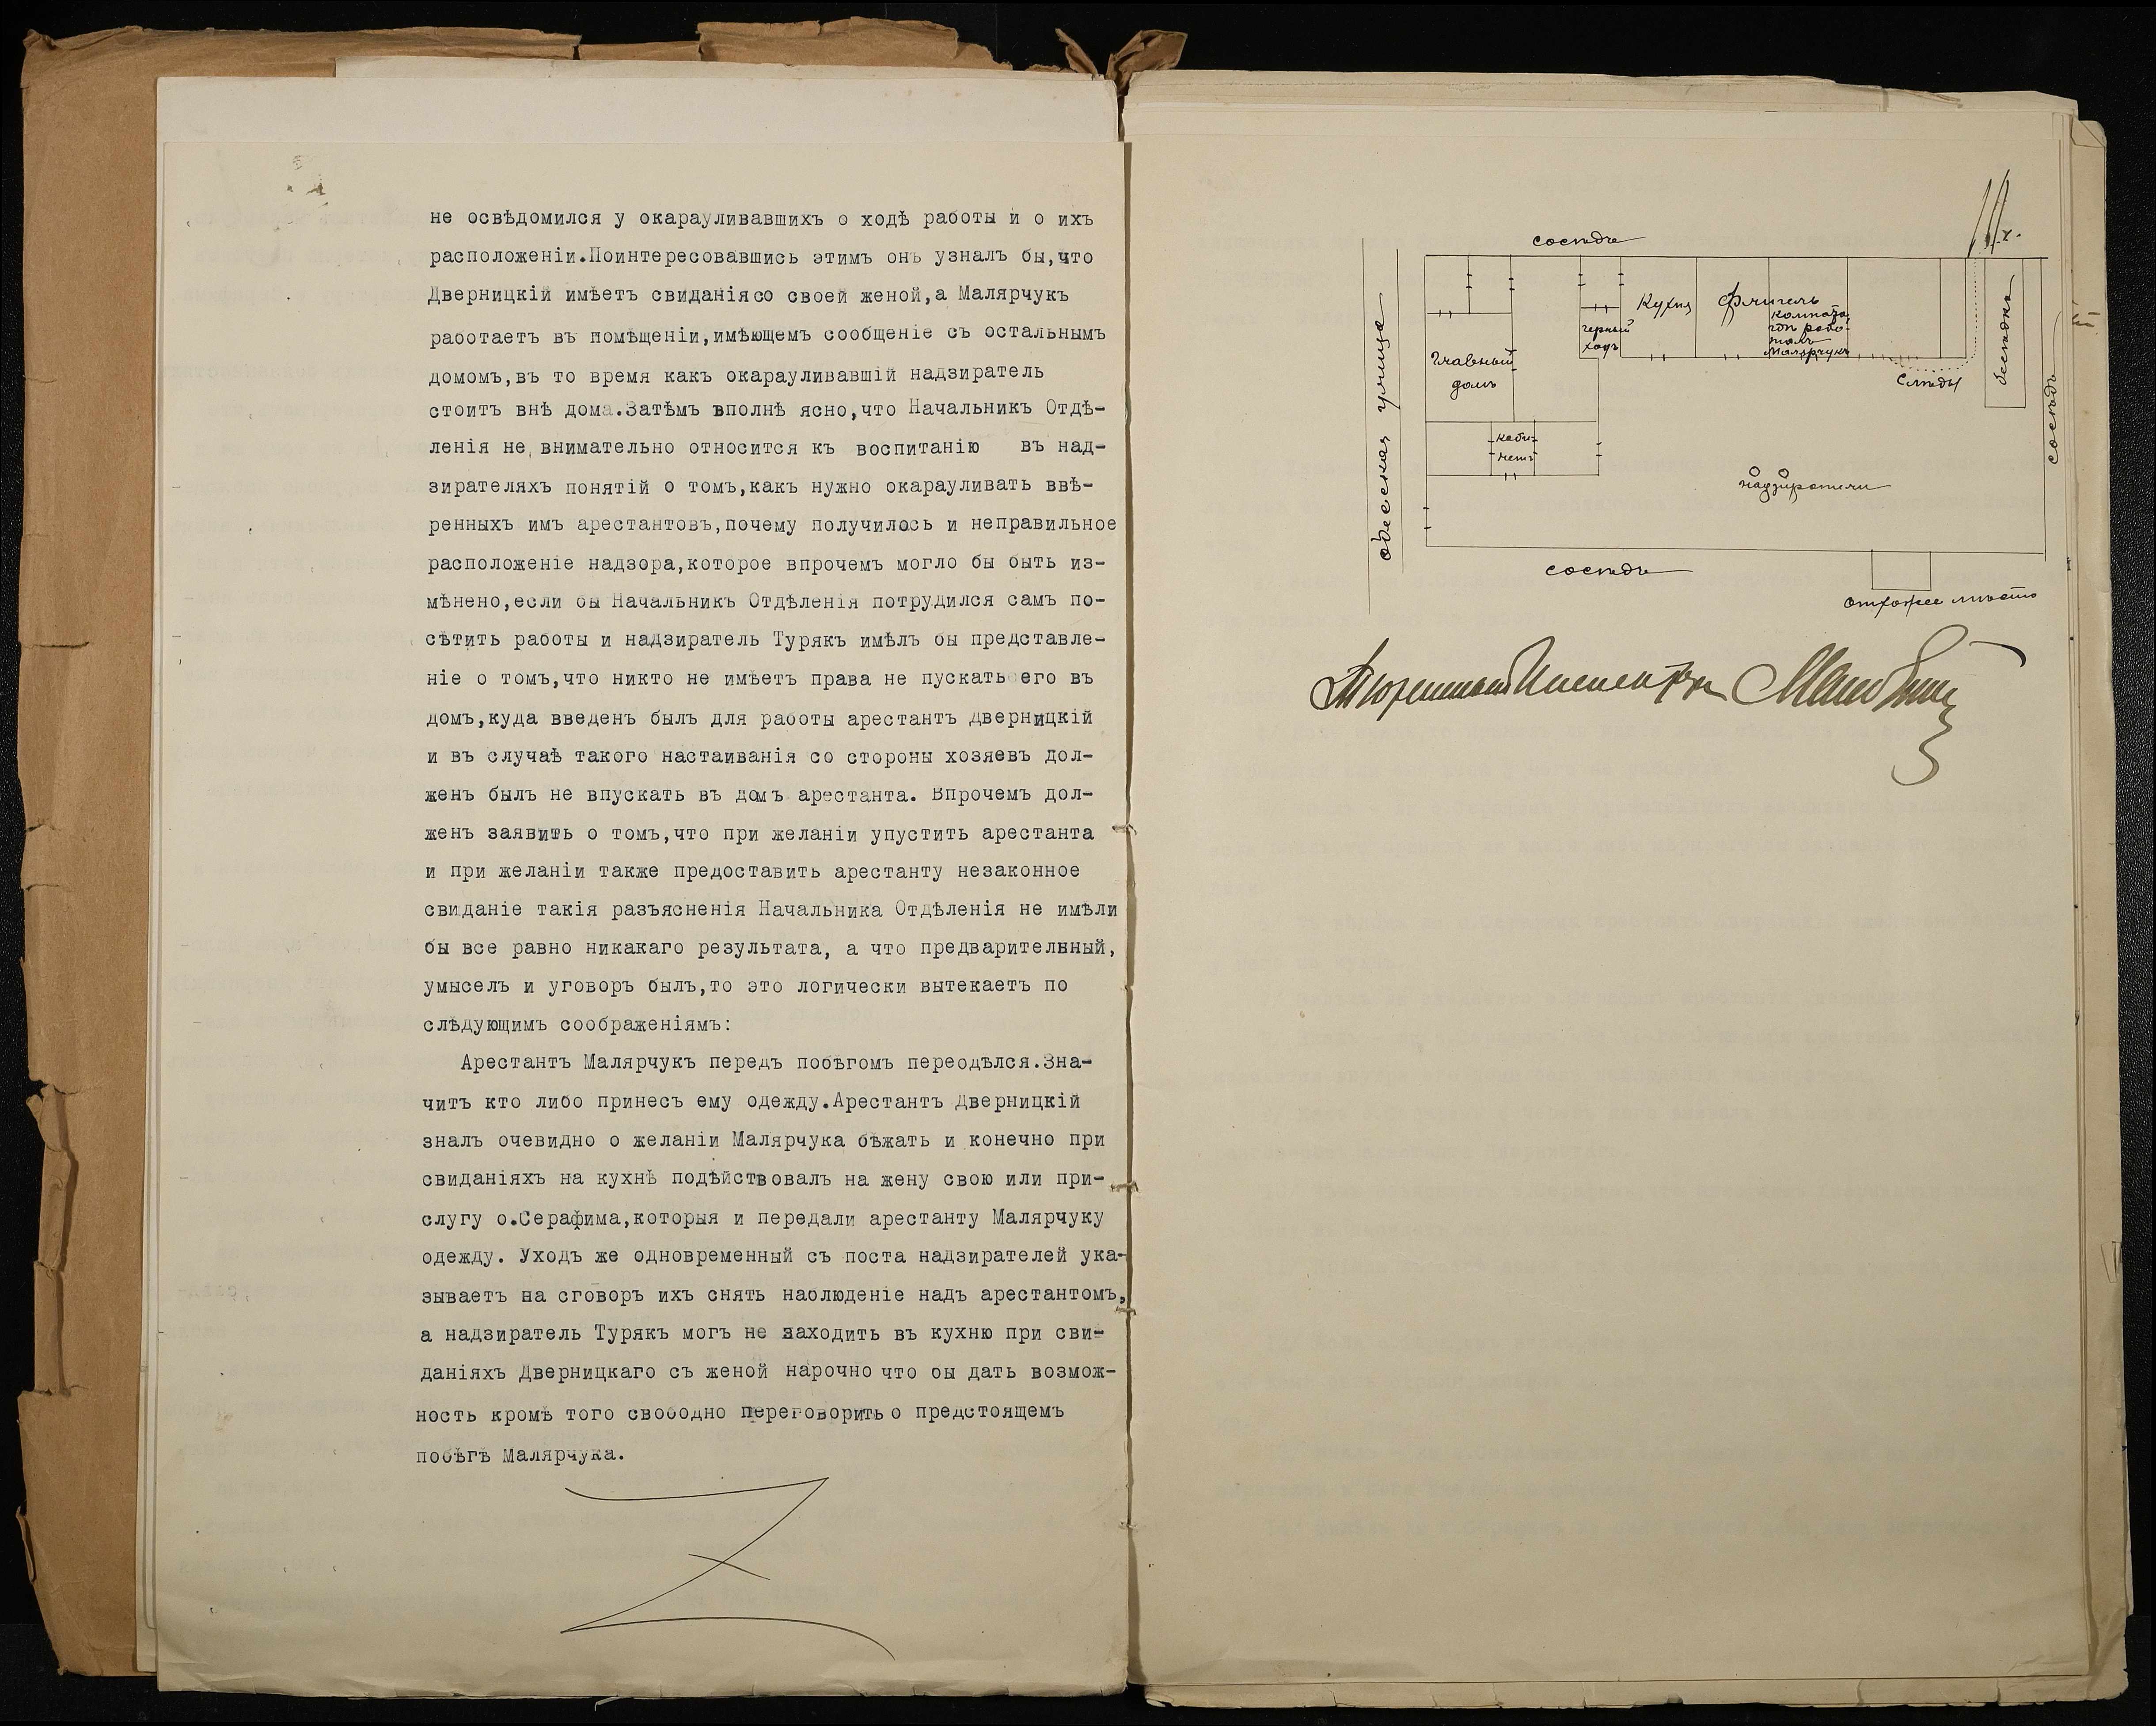 не освѣдомился у окарауливавшихъ о ходѣ работы и о ихъ
расположеніи.Поинтересовавшись этимъ онъ узналъ бы,что
Дверницкій имѣетъ свиданія со своей женой,а Малярчукъ
работаетъ въ помѣщеніи,имѣющемъ сообщеніе съ остальнымъ
домомъ,въ то время какъ окарауливавшій надзиратель
стоитъ внѣ дома.Затѣмъ вполнѣ ясно,что Начальникъ Отдѣ-
ленія не внимательно относится къ воспитанію въ над-
зирателяхъ понятій о томъ,какъ нужно окарауливать ввѣ-
ренныхъ имъ арестантовъ,почему получилось и неправильное
расположеніе надзора,которое впрочемъ могло бы быть из-
мѣнено,если бы Начальникъ Отдѣленія потрудился самъ по-
сѣтить работы и надзиратель Турякъ имѣлъ бы представле-
ніе о томъ,что никто не имѣетъ права не пускать его въ
домъ,куда введенъ былъ для работы арестантъ Дверницкій
и въ случаѣ такого настаиванія со стороны хозяевъ дол-
женъ былъ не впускать въ домъ арестанта. Впрочемъ дол-
женъ заявить о томъ,что при желаніи упустить арестанта
и при желаніи также предоставить арестанту незаконное
свиданіе такія разъясненія Начальника Отдѣленія не имѣли
бы все равно никакаго результата, а что предварительный,
умыселъ и уговоръ былъ,то это логически вытекаетъ по
слѣдующимъ соображеніямъ:
Арестантъ Малярчукъ передъ побѣгомъ переодѣлся.Зна-
читъ кто либо принесъ ему одежду.Арестантъ Дверницкій
зналъ очевидно о желаніи Малярчука бѣжать и конечно при
свиданіяхъ на кухнѣ подѣйствовалъ на жену свою или при-
слугу о.Серафима,которыя и передали арестанту Малярчуку
одежду. Уходъ же одновременный съ поста надзирателей ука-
зываетъ на сговоръ ихъ снять наблюденіе надъ арестантомъ,
а надзиратель Турякъ могъ не заходить въ кухню при сви-
даніяхъ Дверницкаго съ женой нарочно что бы дать возмож-
ность кромѣ того свободно переговорить о предстоящемъ
побѣгѣ Малярчука.
сосѣдъ
Одесская улица
Главный
домъ
черный
ходъ
Кухня
Флигель
комната,
гдѣ рабо-
талъ
Малярчукъ
слѣды
бесѣдка
сосѣдъ
каби-
нетъ
надзиратели
сосѣдъ
отхожее мѣсто
Тюремный Инспекторъ